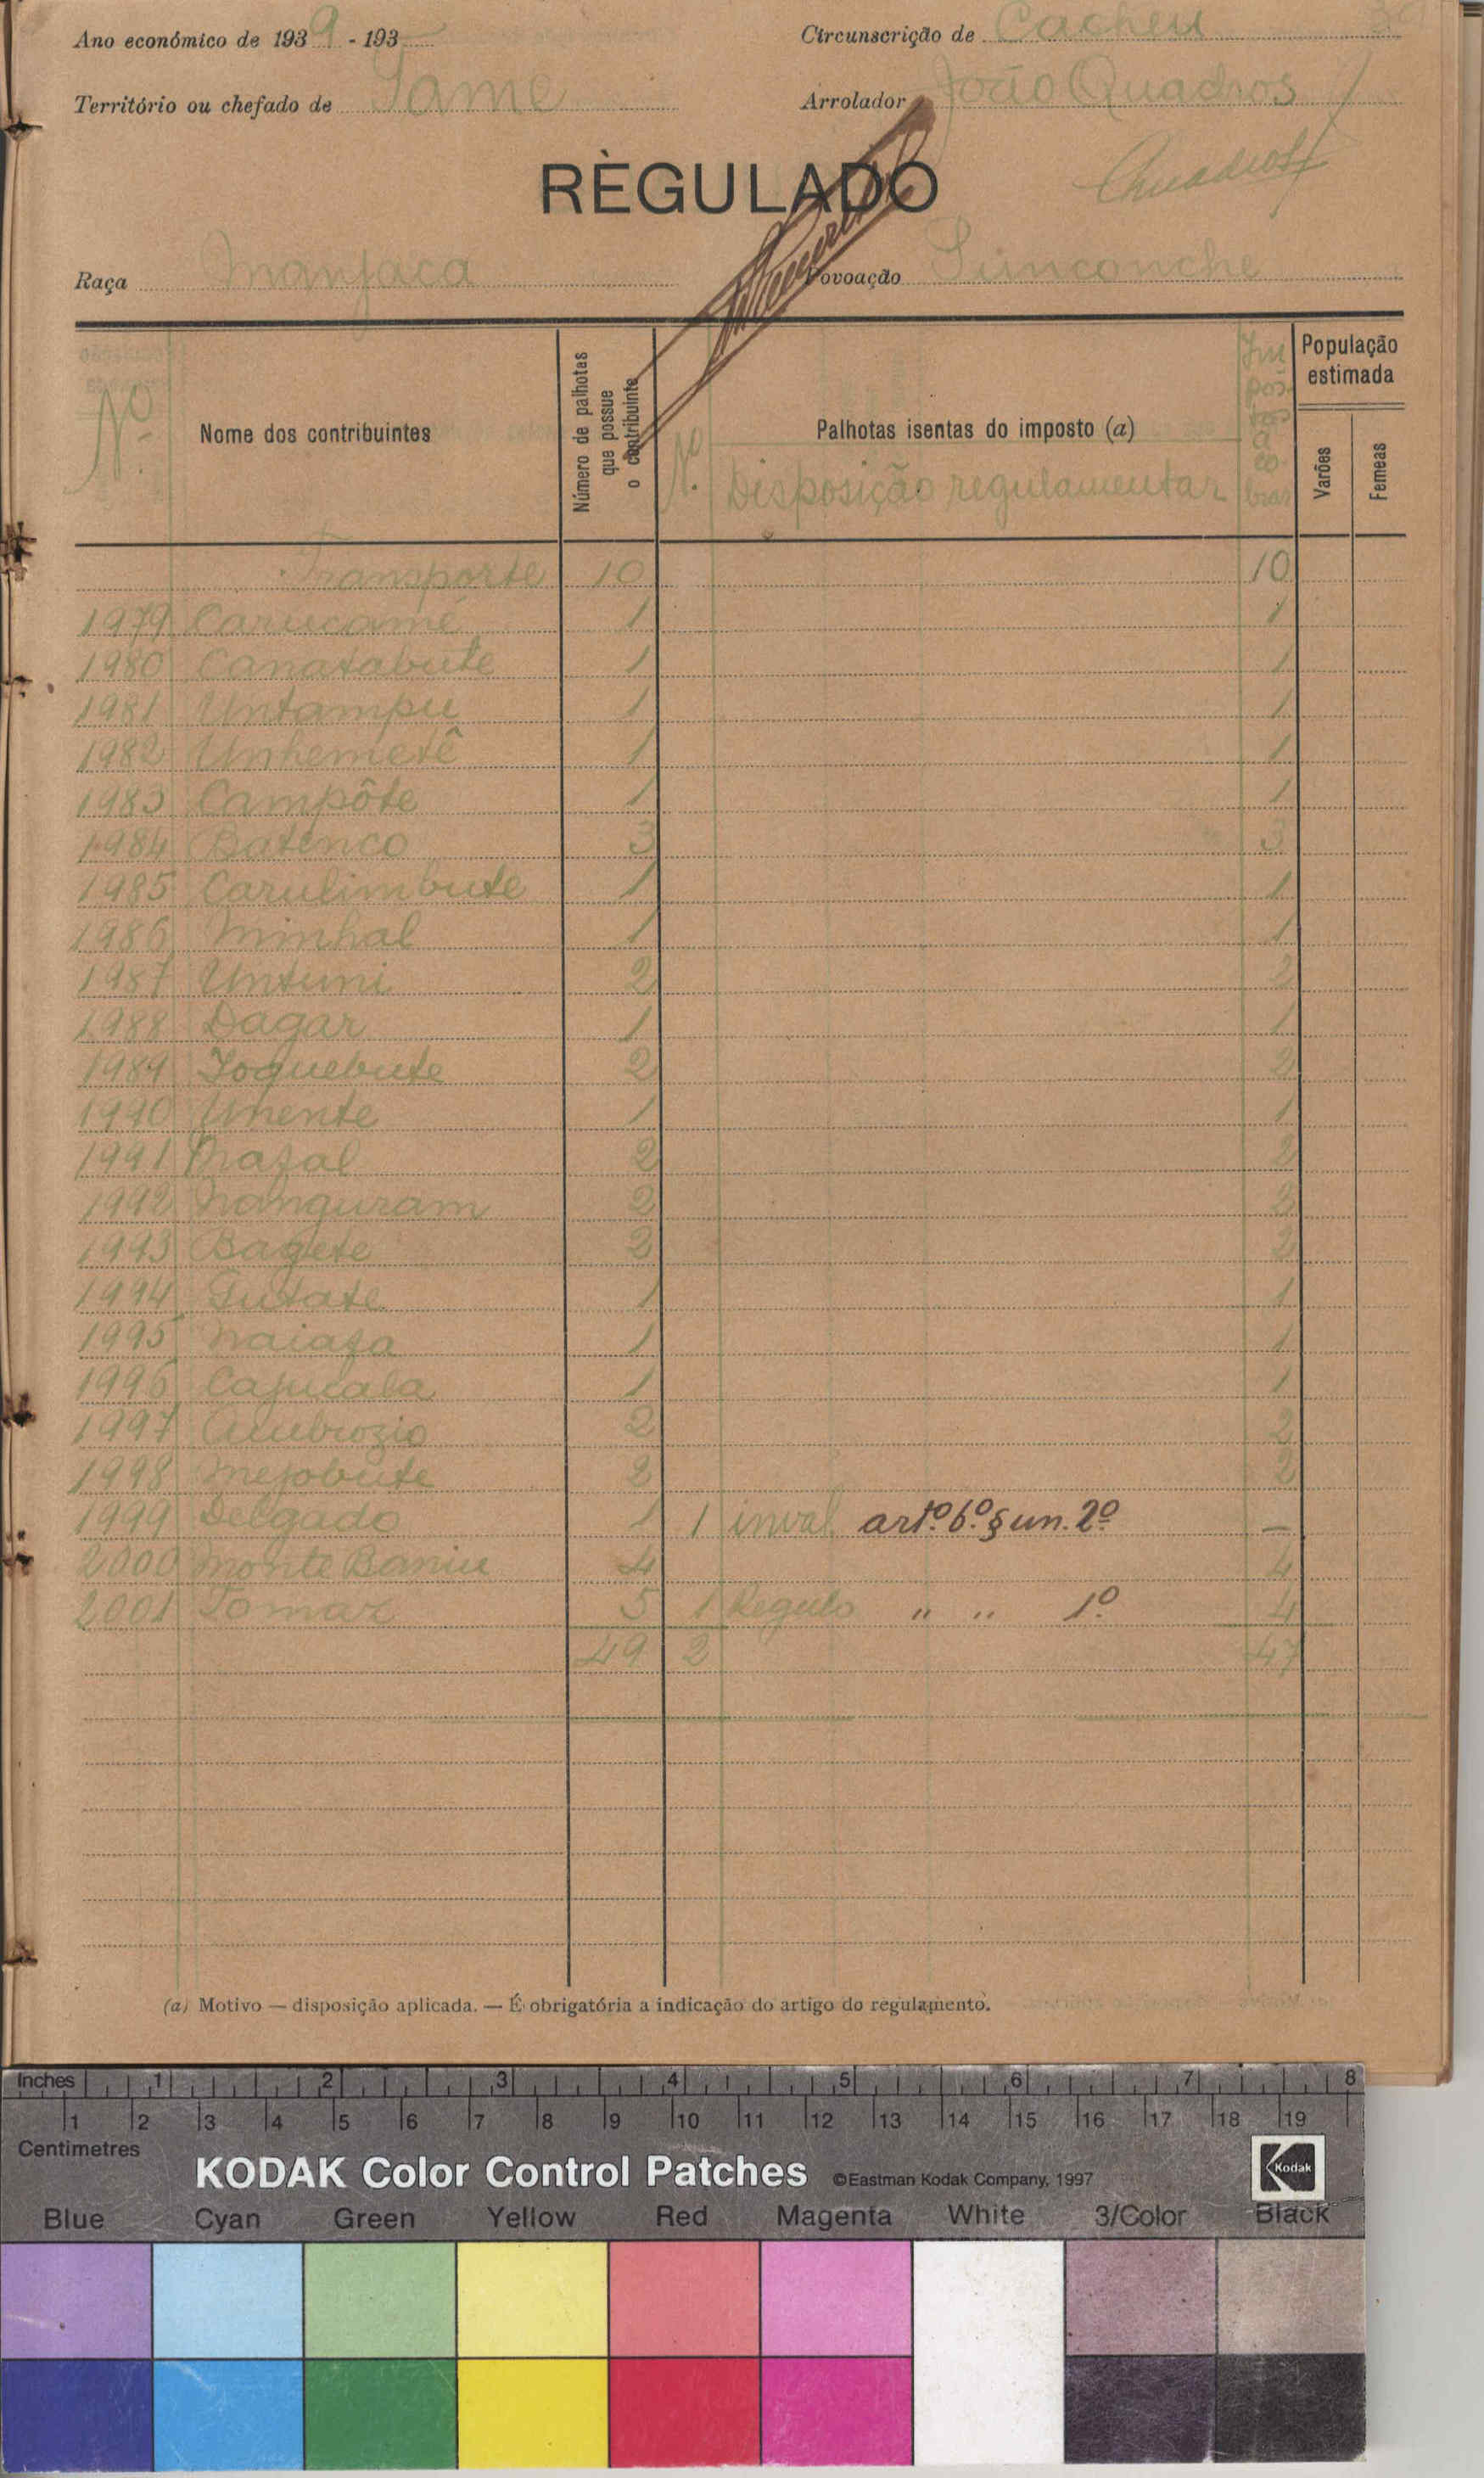 Ano económico de 1939 - 193
Circunscrição de Cacheu
Território ou chefado de Pame
Arrolador João Quadros
Quadros
RÈGULADO
Raça Manjaca
Povoação
Nº
Nome dos contribuintes
Número de palhotas que possue o contribuinte
Nº
Palhotas isentas do imposto (a)
Disposição regulamentar
Impostos a cobrar
População estimada
Varões
Femeas
Transporte 10 10
1979 Carucamé 1 1
1980 Canatabute 1 1
1981 Untampu 1 1
1982 Unhemetê 1 1
1983 Campôte 1 1
1984 Batenco 3 3
1985 Carulimbute 1 1
1986 Minhal 1 1
1987 Untuni 2 2
1988 Dagar 1 1
1989 Joquebute 2 2
1990 Unente 1 1
1991 2 2
1992 Nanguram 2 2
1993 Bagete 2 2
1994 Gutate 1 1
1995 1 1
1996 Cajucala 1 1
1997 Ambrozio 2 2
1998 Mejobute 2 2
1999 Delgado 1 1 inval artº 6º § un. 2º —
2000 Monte Baniu 4 4
2001 Tomaz 5 1 Regulo " " 1º 4
49 2 47
(a) Motivo — disposição aplicada. — É obrigatória a indicação do artigo do regulamento.
Inches 1 2 3 4 5 6 7 8
1 2 3 4 5 6 7 8 9 10 11 12 13 14 15 16 17 18 19
Centimetres
KODAK Color Control Patches ©Eastman Kodak Company, 1997 Kodak
Blue Cyan Green Yellow Red Magenta White 3/Color Black